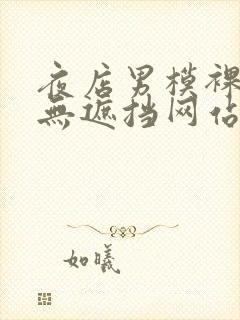 夜店男模裸
無遮挡网佔
如曦